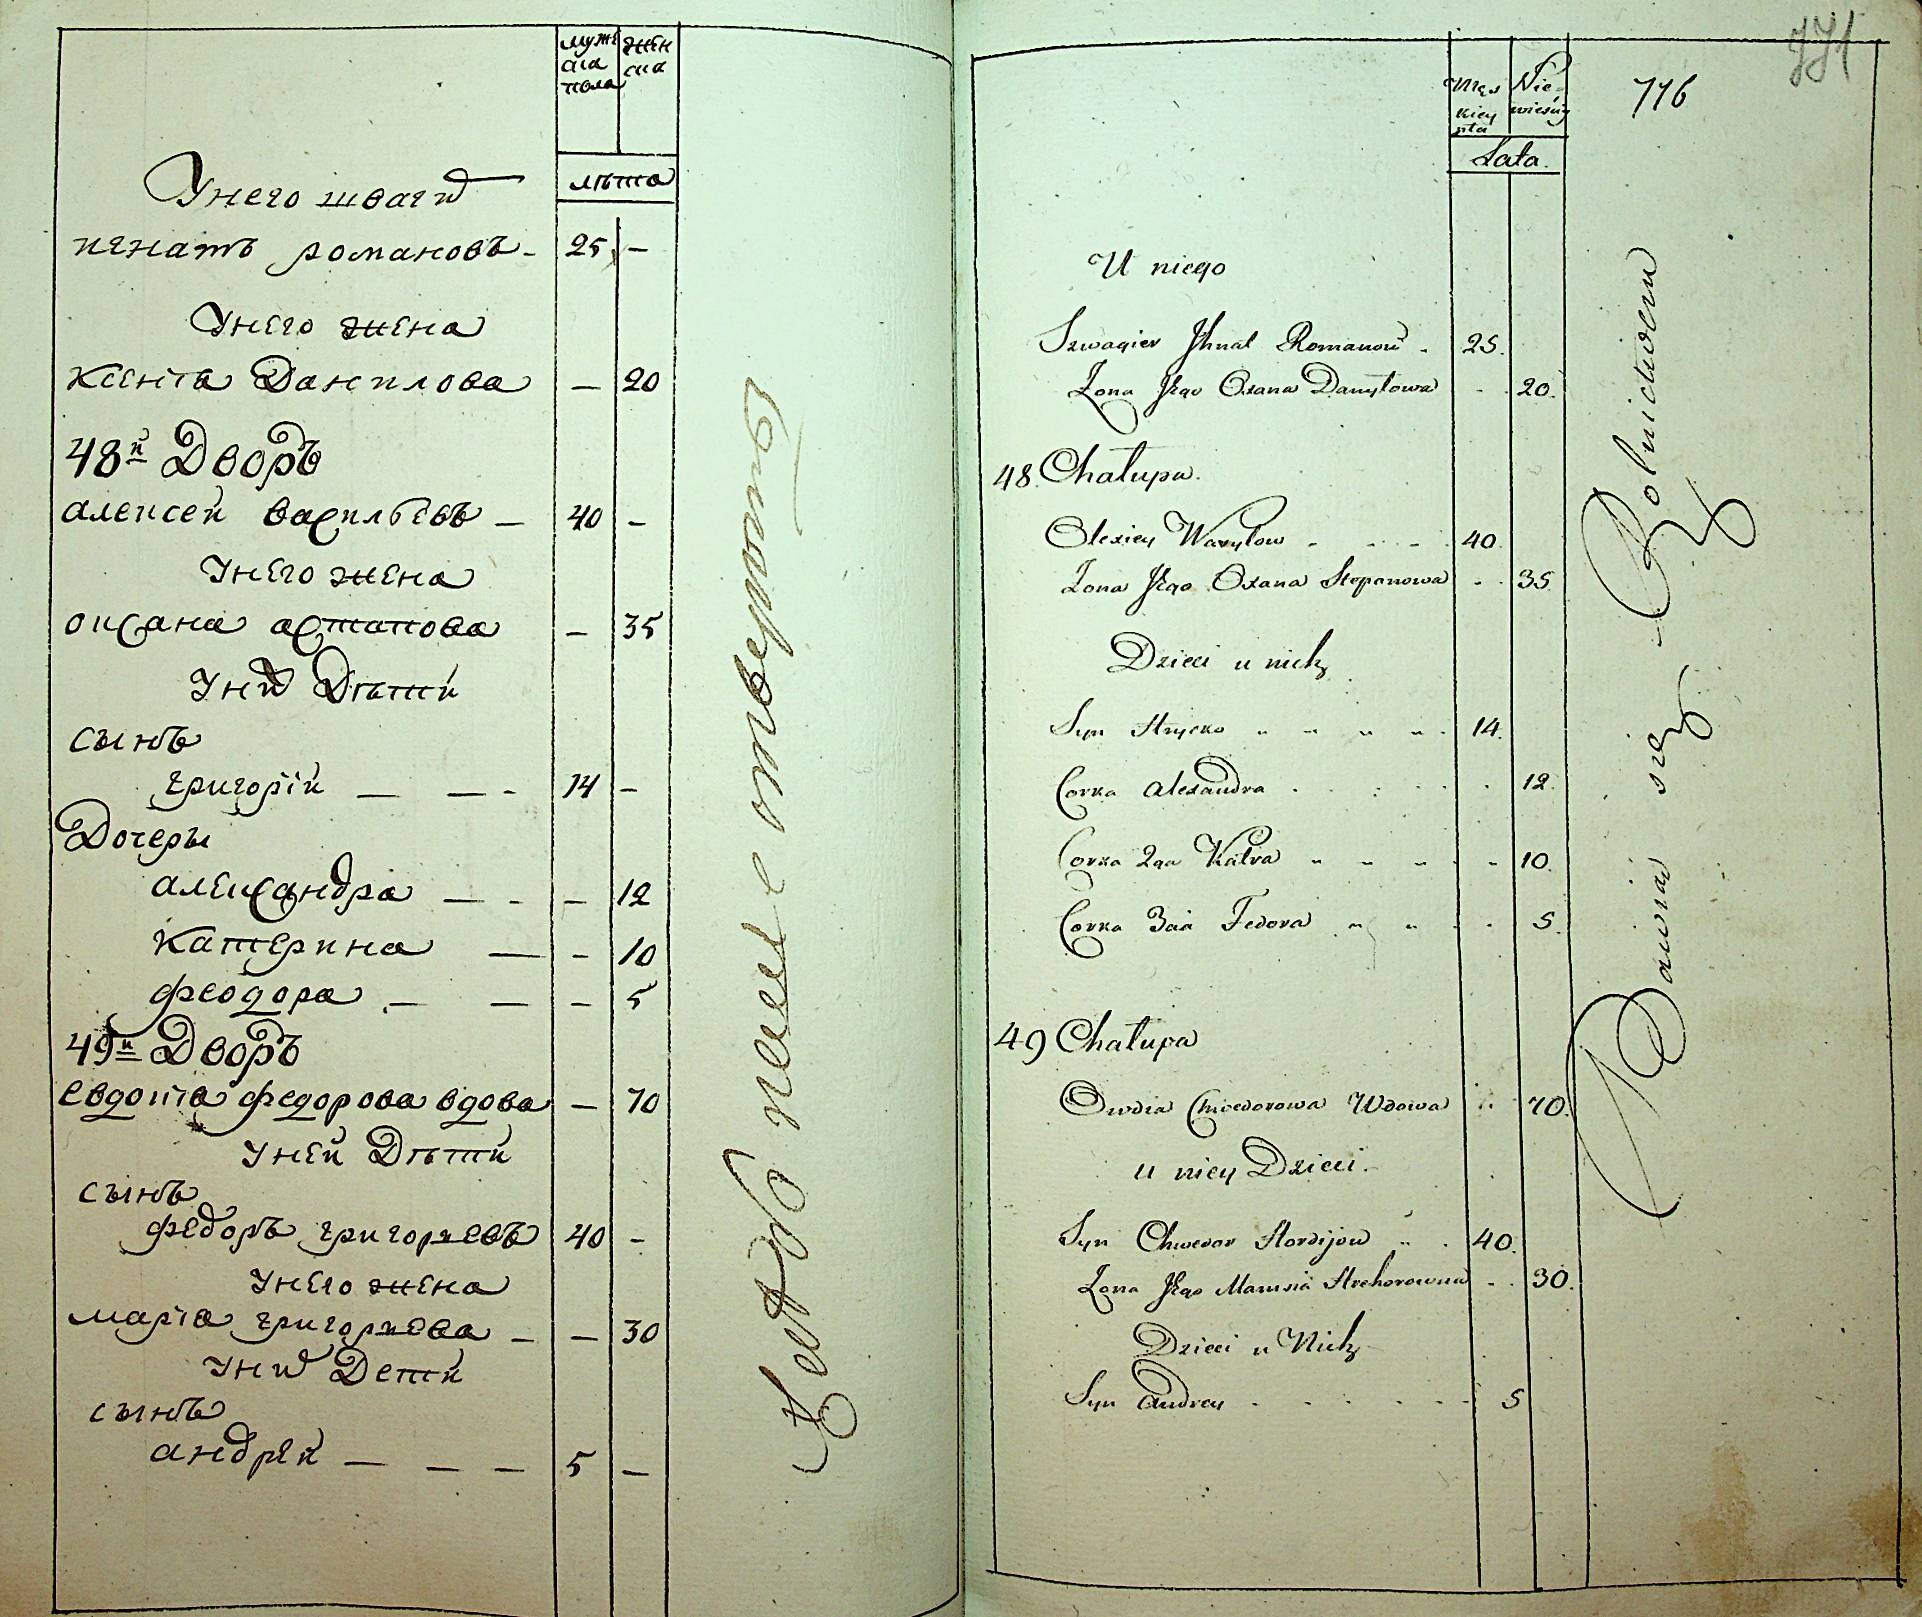 мужска пола
женска
лѣта
У него шваги
игнатъ романовъ - 25 -
У него жена
ксенїа Данилова - 20
48й Дворъ
алексей васильевъ - 40 -
У него жена
оксана астапова - 35
У них Дѣти
сынъ
григорїй - - - 14 -
Дочеры
александра - - - 12
катерина - - 10
феодора - - - 5
49й Дворъ
евдокїа федорова вдова - 70
У ней Дѣти
сынъ
федоръ григорьевъ 40 -
У него жена
марїа григорьева - - 30
У них Дети
сынъ
андрей - - - 5 -
771
716
Męskiey płci
Niewieściey
Lata.
U niego
Szwagier Jhnat Romanow . 25.
Żona Jego Oxana Danyłowa . . 20.
48. Chałupa.
Olexiey Wasylow - . . - . 40.
Żona Jego Oxana Stepanowa . . 35
Dzieci u nich
Syn Hrycko " " " " . 14.
Corka Alexandra . . : . . . 12.
Corka 2ga Katra " " " - - 10.
Corka 3cia Fedora " " . . 5.
49 Chałupa
Owdia Chwedorowa Wdowa . 70.
u niey Dzieci.
Syn Chwedor Hordijow " . 40.
Żona Jego Marusia Hrehorowna . . 30.
Dzieci u Nich
Syn Andrey . . . . . . 5
Bawią się Rolnictwem